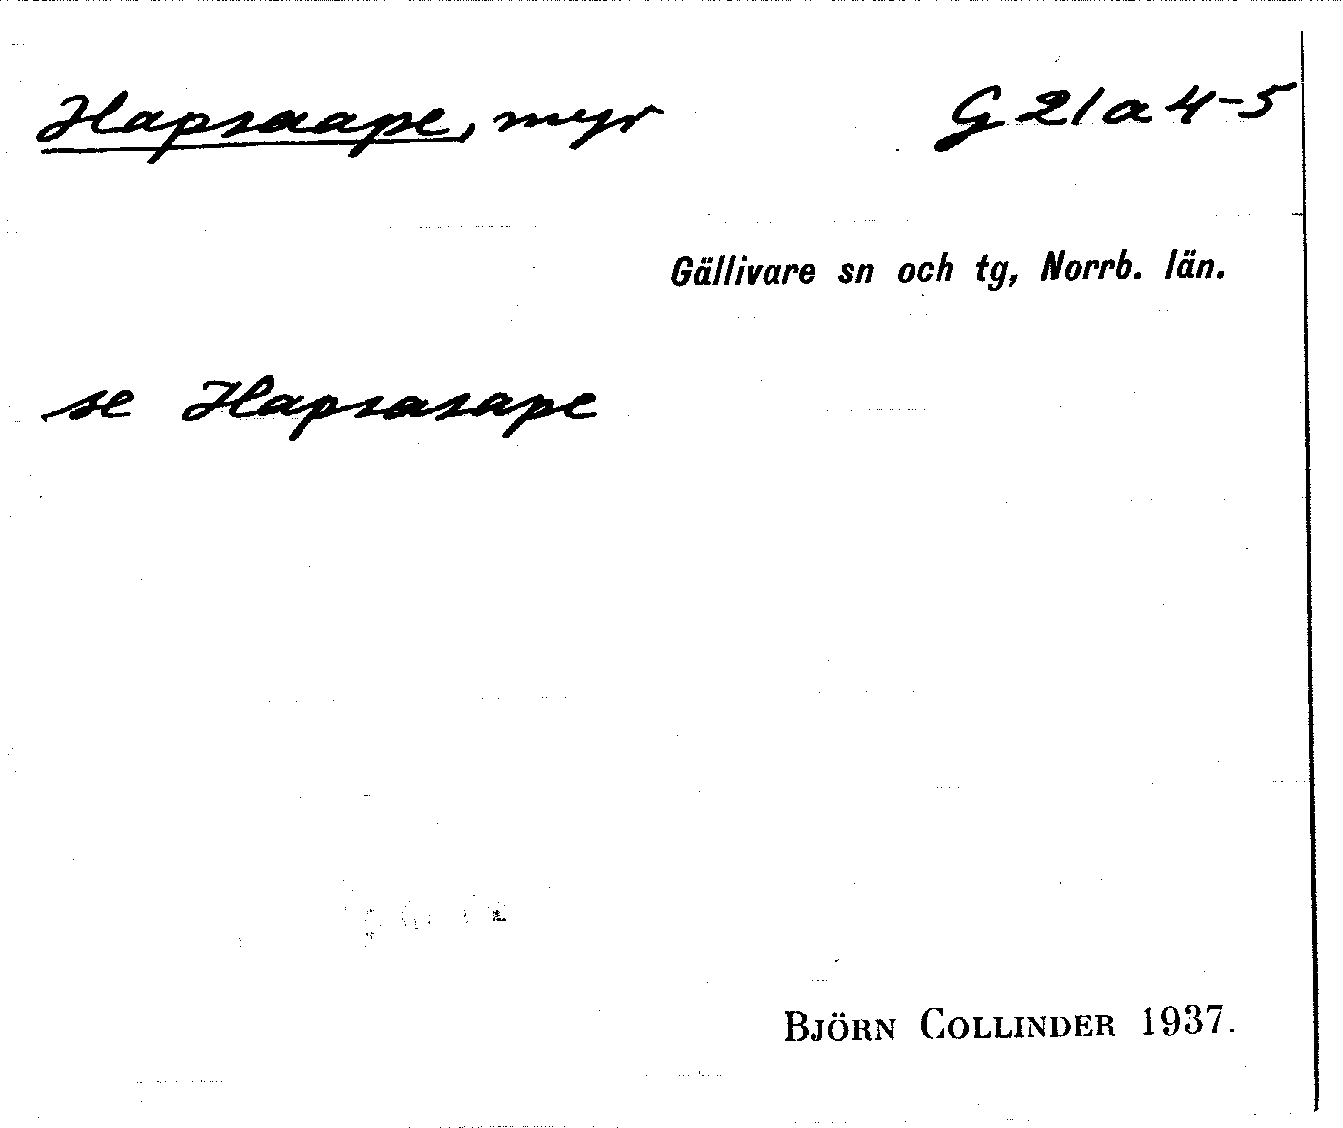 Hapsaape, myr G 21 a 4-5
Gällivare sn och tg, Norrb. län.
se Hapsasape
BJÖRN COLLINDER 1937.